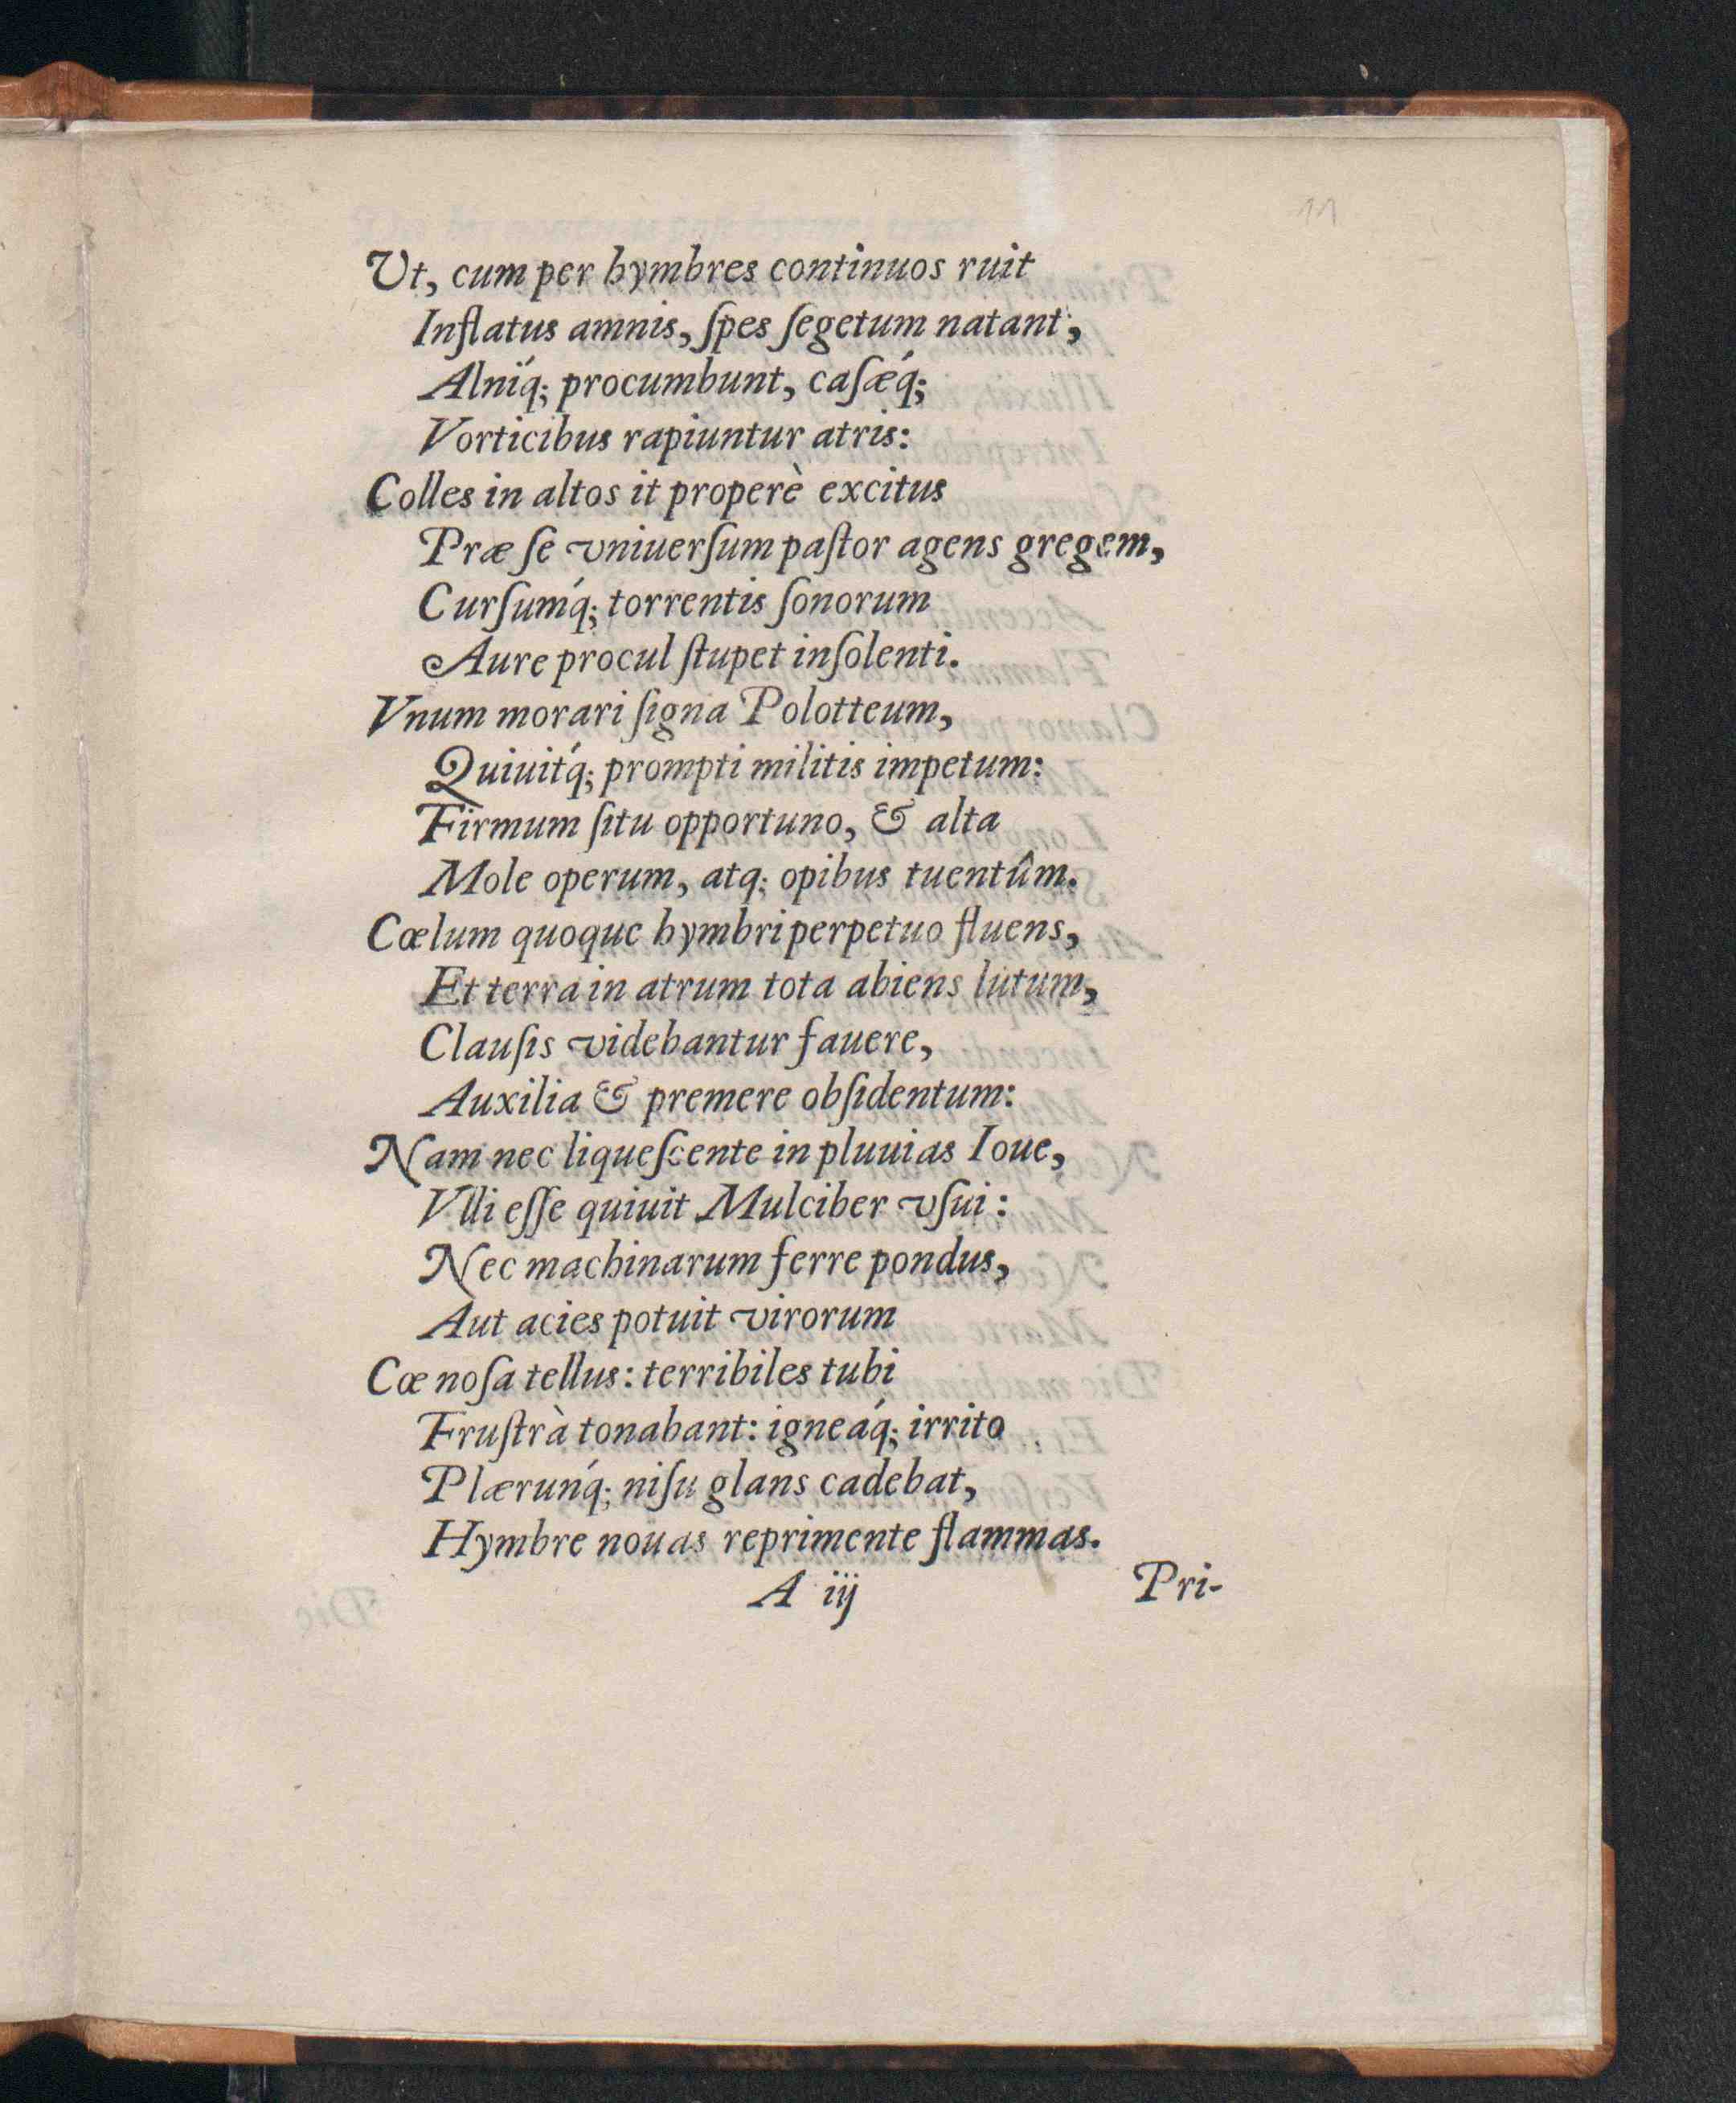 11
Ut, cum per hymbres continuos ruit
Inflatus amnis, ſpes ſegetum natant,
Alniq́; procumbunt, caſæq́;
Vorticibus rapiuntur atris:
Colles in altos it properè excitus
Præ ſe vniuerſum paſtor agens gregem,
Curſumq́; torrentis ſonorum
Aure procul ſtupet inſolenti.
Vnum morari ſigna Polotteum,
Quiuitq́; prompti militis impetum:
Firmum ſitu opportuno, & alta
Mole operum, atq; opibus tuentûm.
Cœlum quoque hymbri perpetuo fluens,
Et terra in atrum tota abiens lutum,
Clauſis videbantur fauere,
Auxilia & premere obſidentum:
Nam nec liqueſcente in pluuias Ioue,
Vlli eſſe quiuit Mulciber vſui:
Nec machinarum ferre pondus,
Aut acies potuit virorum
Cœnoſa tellus: terribiles tubi
Fruſtrà tonabant: igneaq́; irrito
Plærunq́; niſu glans cadebat,
Hymbre nouas reprimente flammas.
A iij Pri-